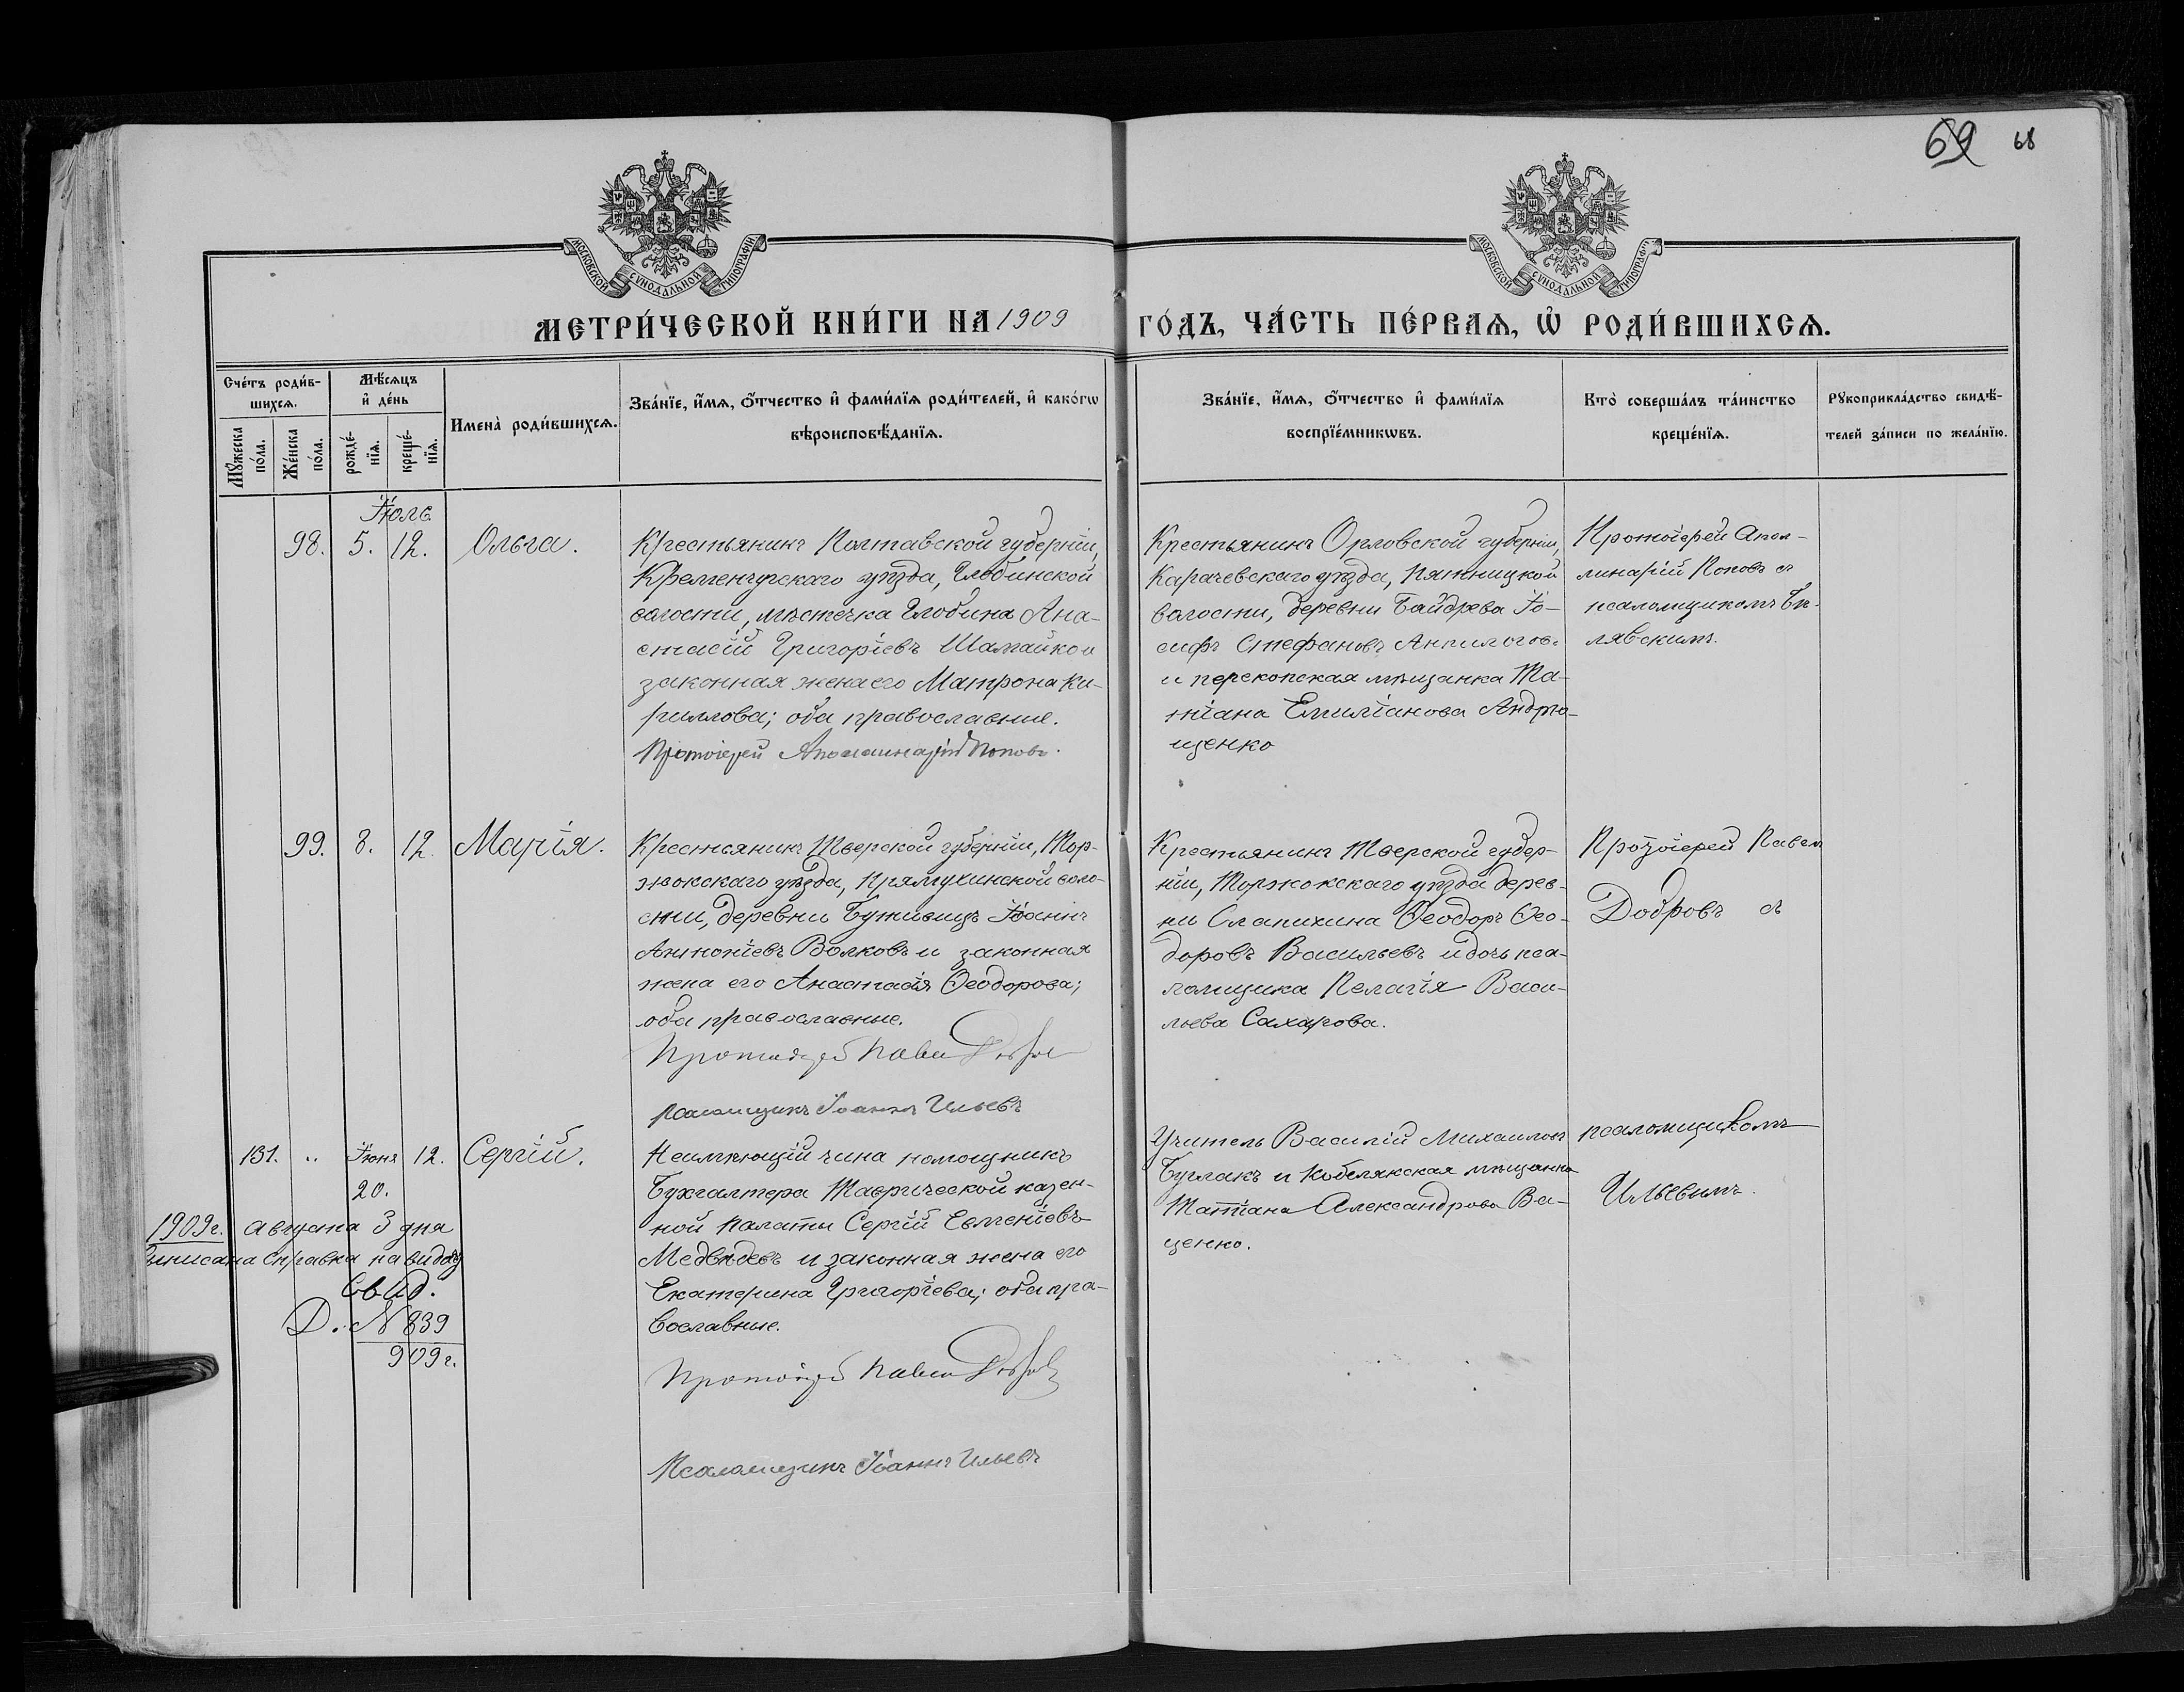 69 68
МОСКОВСКОЙ СУНОДАЛЬНОЙ ТИПОГРАФІИ
МОСКОВСКОЙ СУНОДАЛЬНОЙ ТИПОГРАФІИ
МЕТРИ́ЧЕСКОЙ КНИ́ГИ НА 1909 ГО́ДЪ, ЧА́СТЬ ПЕ́РВАѦ, Ѡ҆ РОДИ́ВШИХСѦ.
Сче́тъ роди́в-
шихсѧ.
Мꙋ́жеска по́ла.
Же́нска по́ла.
Мѣ́сѧцъ
и҆ де́нь
рожде́-
нїѧ.
креще́-
нїѧ.
Имена̀ роди́вшихсѧ.
Зва́нїе, и҆́мѧ, ѻ҆́тчество и҆ фами́лїѧ роди́телей, и҆ како́гѡ
вѣроисповѣ́данїѧ.
Зва́нїе, и҆́мѧ, ѻ҆́тчество и҆ фами́лїѧ
воспрїе́мникѡвъ.
Кто̀ соверша́лъ та́инство
креще́нїѧ.
Рꙋкоприкла́дство свидѣ́-
телей за́писи по жела́нїю.
Іюль
98. 5. 12. Ольга.
Крестьянинъ Полтавской губерніи,
Кременчугскаго уѣзда, Глобинской
волости, мѣстечка Глобина Ана-
стасій Григоріевъ Шамайко и
законная жена его Матрона Ки-
риллова; оба православные.
Протоіерей Аполлинарій Поповъ.
Крестьянинъ Орловской губерніи,
Карачевскаго уѣзда, Пятницкой
волости, деревни Байдрева Іо-
сифъ Стефановъ Анпилогов.
и перекопская мѣщанка Та-
тіана Емиліанова Андрю-
щенко
Протоіерей Апол-
линарій Поповъ съ
псаломщикомъ Бѣ-
лявскимъ.
99. 8. 12. Марія.
Крестьянинъ Тверской губерніи, Тор-
жокскаго уѣзда, Прямухинской воло-
сти, деревни Іоаннъ
Антоніевъ Волковъ и законная
жена его Анастасія Ѳеодорова;
оба православные.
Протоіерей Павелъ Добровъ
Псаломщикъ Іоаннъ Ильевъ
Крестьянинъ Тверской губер-
ніи, Торжокскаго уѣзда дерев-
ни Слапихина Ѳеодоръ Ѳео-
доровъ Васильевъ и дочь пса-
ломщика Пелагія Васи-
льева Сахарова.
Протоіерей Павелъ
Добровъ съ
131. „ Іюня 12. Сергій.
20.
Неимѣющій чина помощникъ
Бухгалтера Таврической казен-
ной палаты Сергій Евгеніевъ
Медвѣдевъ и законная жена его
Екатерина Григоріева; оба пра-
вославные.
Протоіерей Павелъ Добровъ
Псаломщикъ Іоаннъ Ильевъ
Учитель Василій Михаиловъ
Бурлакъ и Кобелякская мѣщанка
Татіана Александрова Ва-
щенко.
псаломщикомъ
Ильевымъ.
1909 г. августа 3 дня
списана справка на выдачу
Свид.
Д. № 839
909 г.